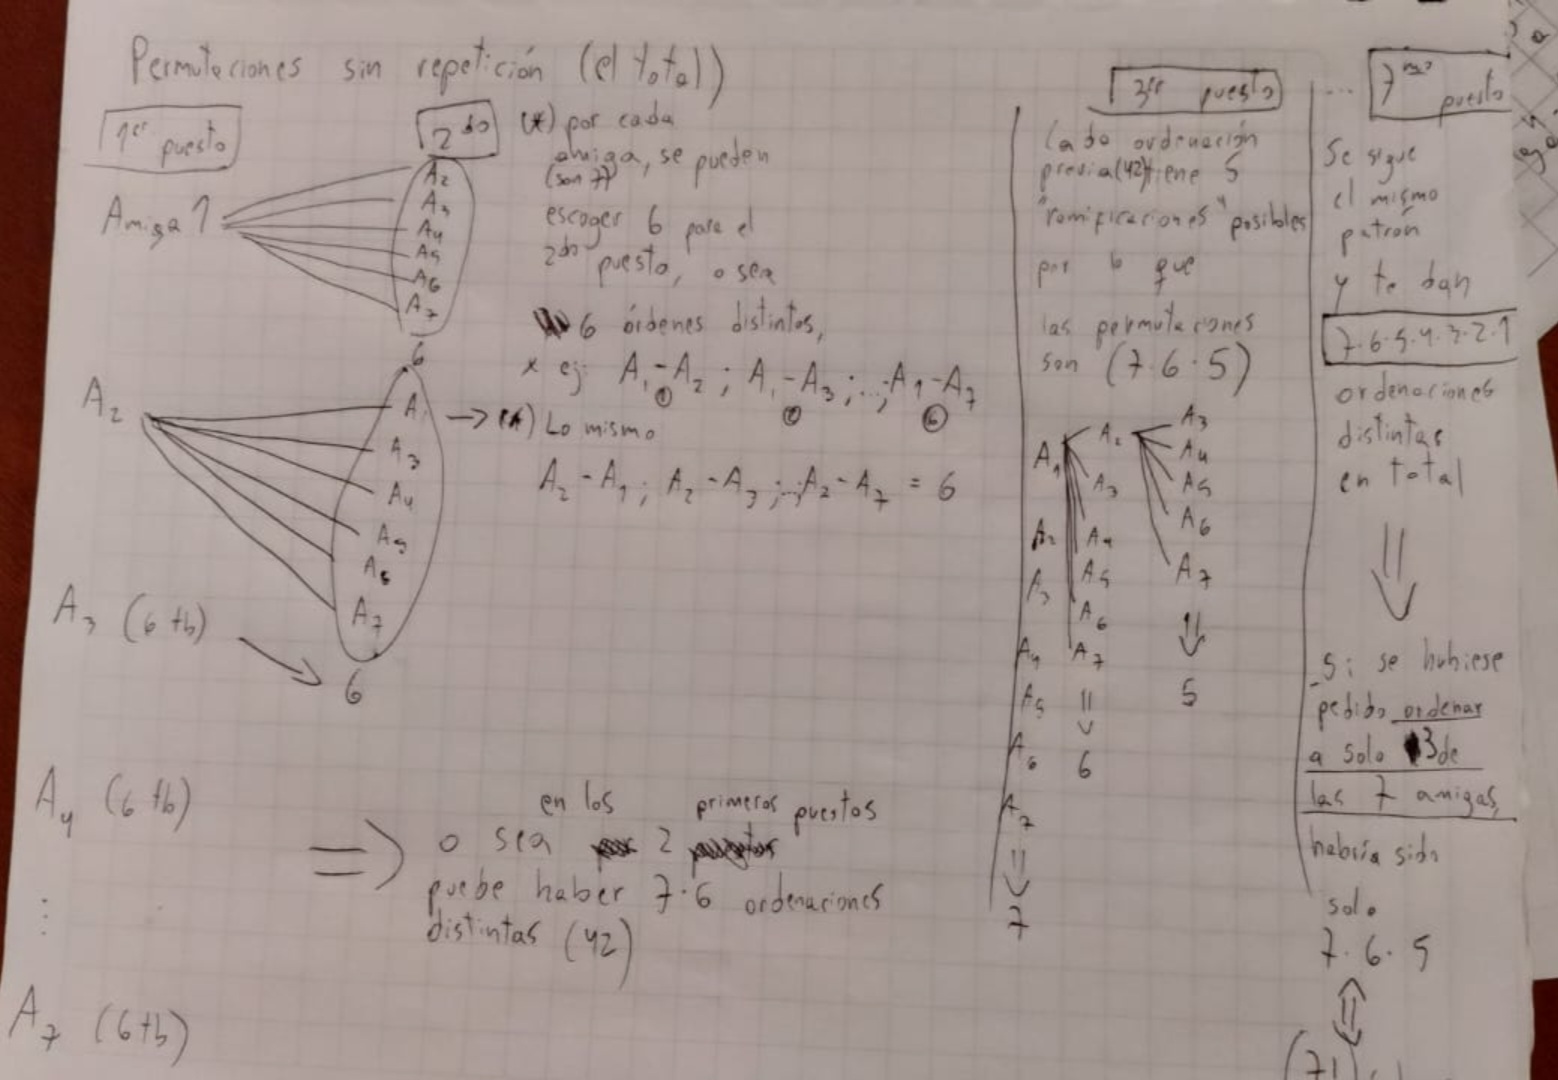 Permutaciones sin repetición (el total)
1er puesto
Amiga 1
2do
A2
A3
A4
A5
A6
A7
6
(*) por cada
amiga, se pueden
(son 7)
escoger 6 para el
2do puesto, o sea
6 órdenes distintos,
x ej: A1-A2 ; A1-A3 ; ...; A1-A7
① ② ⑥
A2
A1
A3
A4
A5
A6
A7
6
→ (*) Lo mismo
A2 - A1 ; A2 - A3 ; ...; A2 - A7 = 6
A3 (6 tb)
A4 (6 tb)
⋮
A7 (6 tb)
⇒ o sea en los 2 primeros puestos
puebe haber 7·6 ordenaciones
distintas (42)
3er puesto
Cada ordenación
previa (42) tiene 5
"ramificaciones" posibles
por lo que
las permutaciones
son (7·6·5)
A1
A2
A3
A4
A5
A6
A7
⇓
7
A2
A3
A4
A5
A6
A7
⇓
6
A3
A4
A5
A6
A7
⇓
5
... 7mo puesto
Se sigue
el mismo
patrón
y te dan
7·6·5·4·3·2·1
ordenaciones
distintas
en total
⇓
Si se hubiese
pedido ordenar
a solo 3 de
las 7 amigas,
habría sido
solo
7·6·5
⇕
(7!